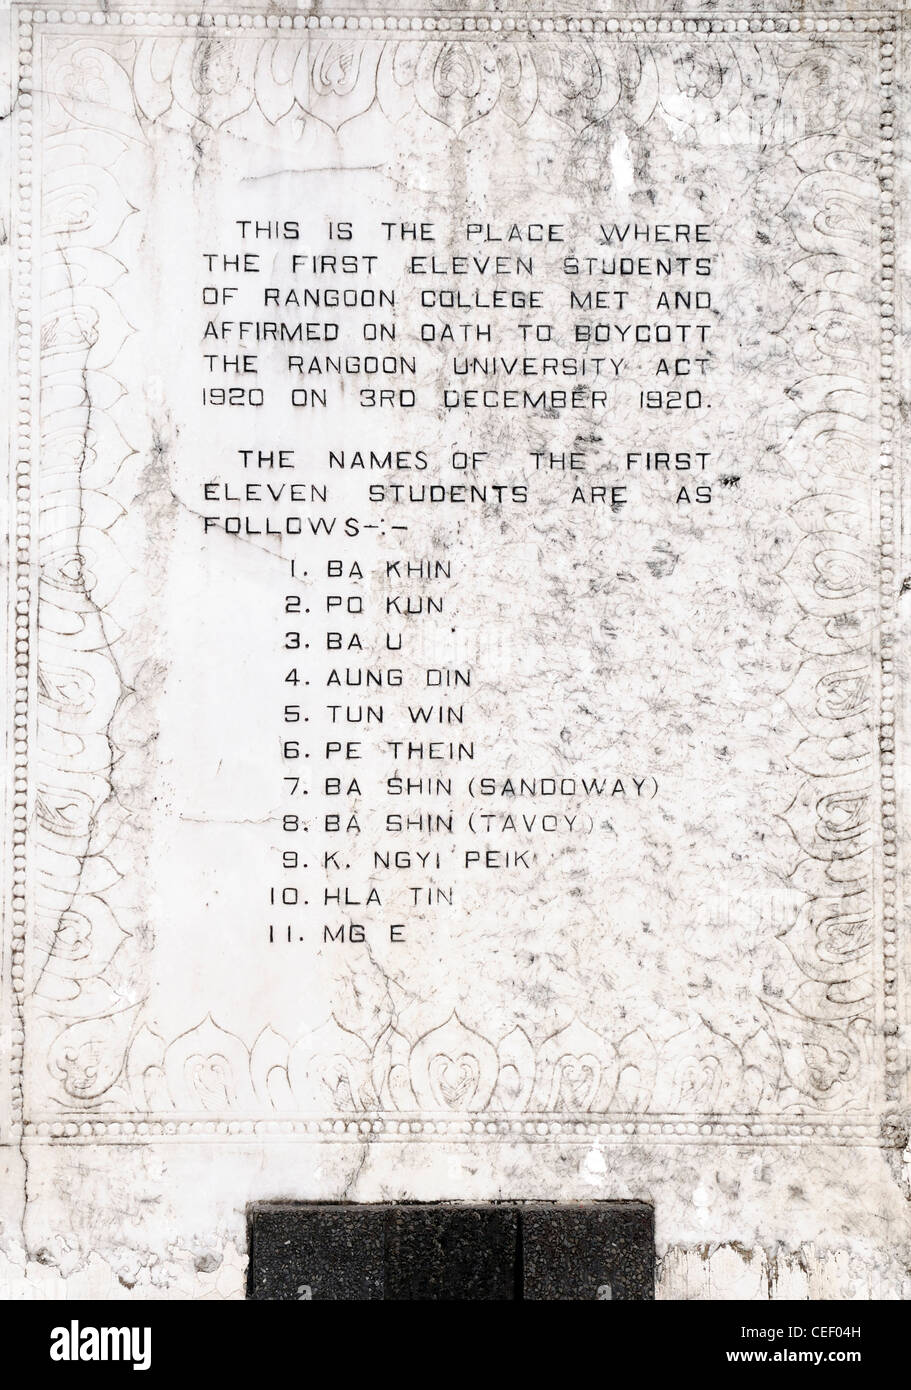 THIS IS THE PLACE WHERE
THE FIRST ELEVEN STUDENTS
OF RANGOON COLLEGE MET AND
AFFIRMED ON OATH TO BOYCOTT
THE RANGOON UNIVERSITY ACT
1920 ON 3RD DECEMBER 1920.
THE NAMES OF THE FIRST
ELEVEN STUDENTS ARE AS
FOLLOWS-:-
1. BA KHIN
2. PO KUN
3. BA U
4. AUNG DIN
5. TUN WIN
6. PE THEIN
7. BA SHIN (SANDOWAY)
8. BA SHIN (TAVOY)
9. K. NGYI PEIK
10. HLA TIN
11. MG E
alamy
Image ID: CEF04H
www.alamy.com